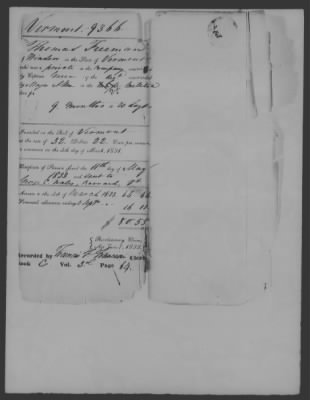 Vermont. 9366
Thomas Freeman
of Windsor in the State of Vermont
who was a private in the Company commanded
by Captain Green of the Regt commanded
by Major Allen in the
line for 9 months & 10 days
Inscribed on the Roll of Vermont
at the rate of 32 Dollars 22 Cents per annum,
to commence on the 4th day of March, 1831.
Certificate of Pension issued the 11th day of May
1833 and sent to
Barnard, Vt
Arrears to the 4th of March 1833 64.44
Semi-anl. allowance ending 4 Sept 16.11
$80.55
Revolutionary Claim,
Act June 7, 1832.
Recorded by Thomas Johnson Clerk
Book C Vol. 3 Page 64.